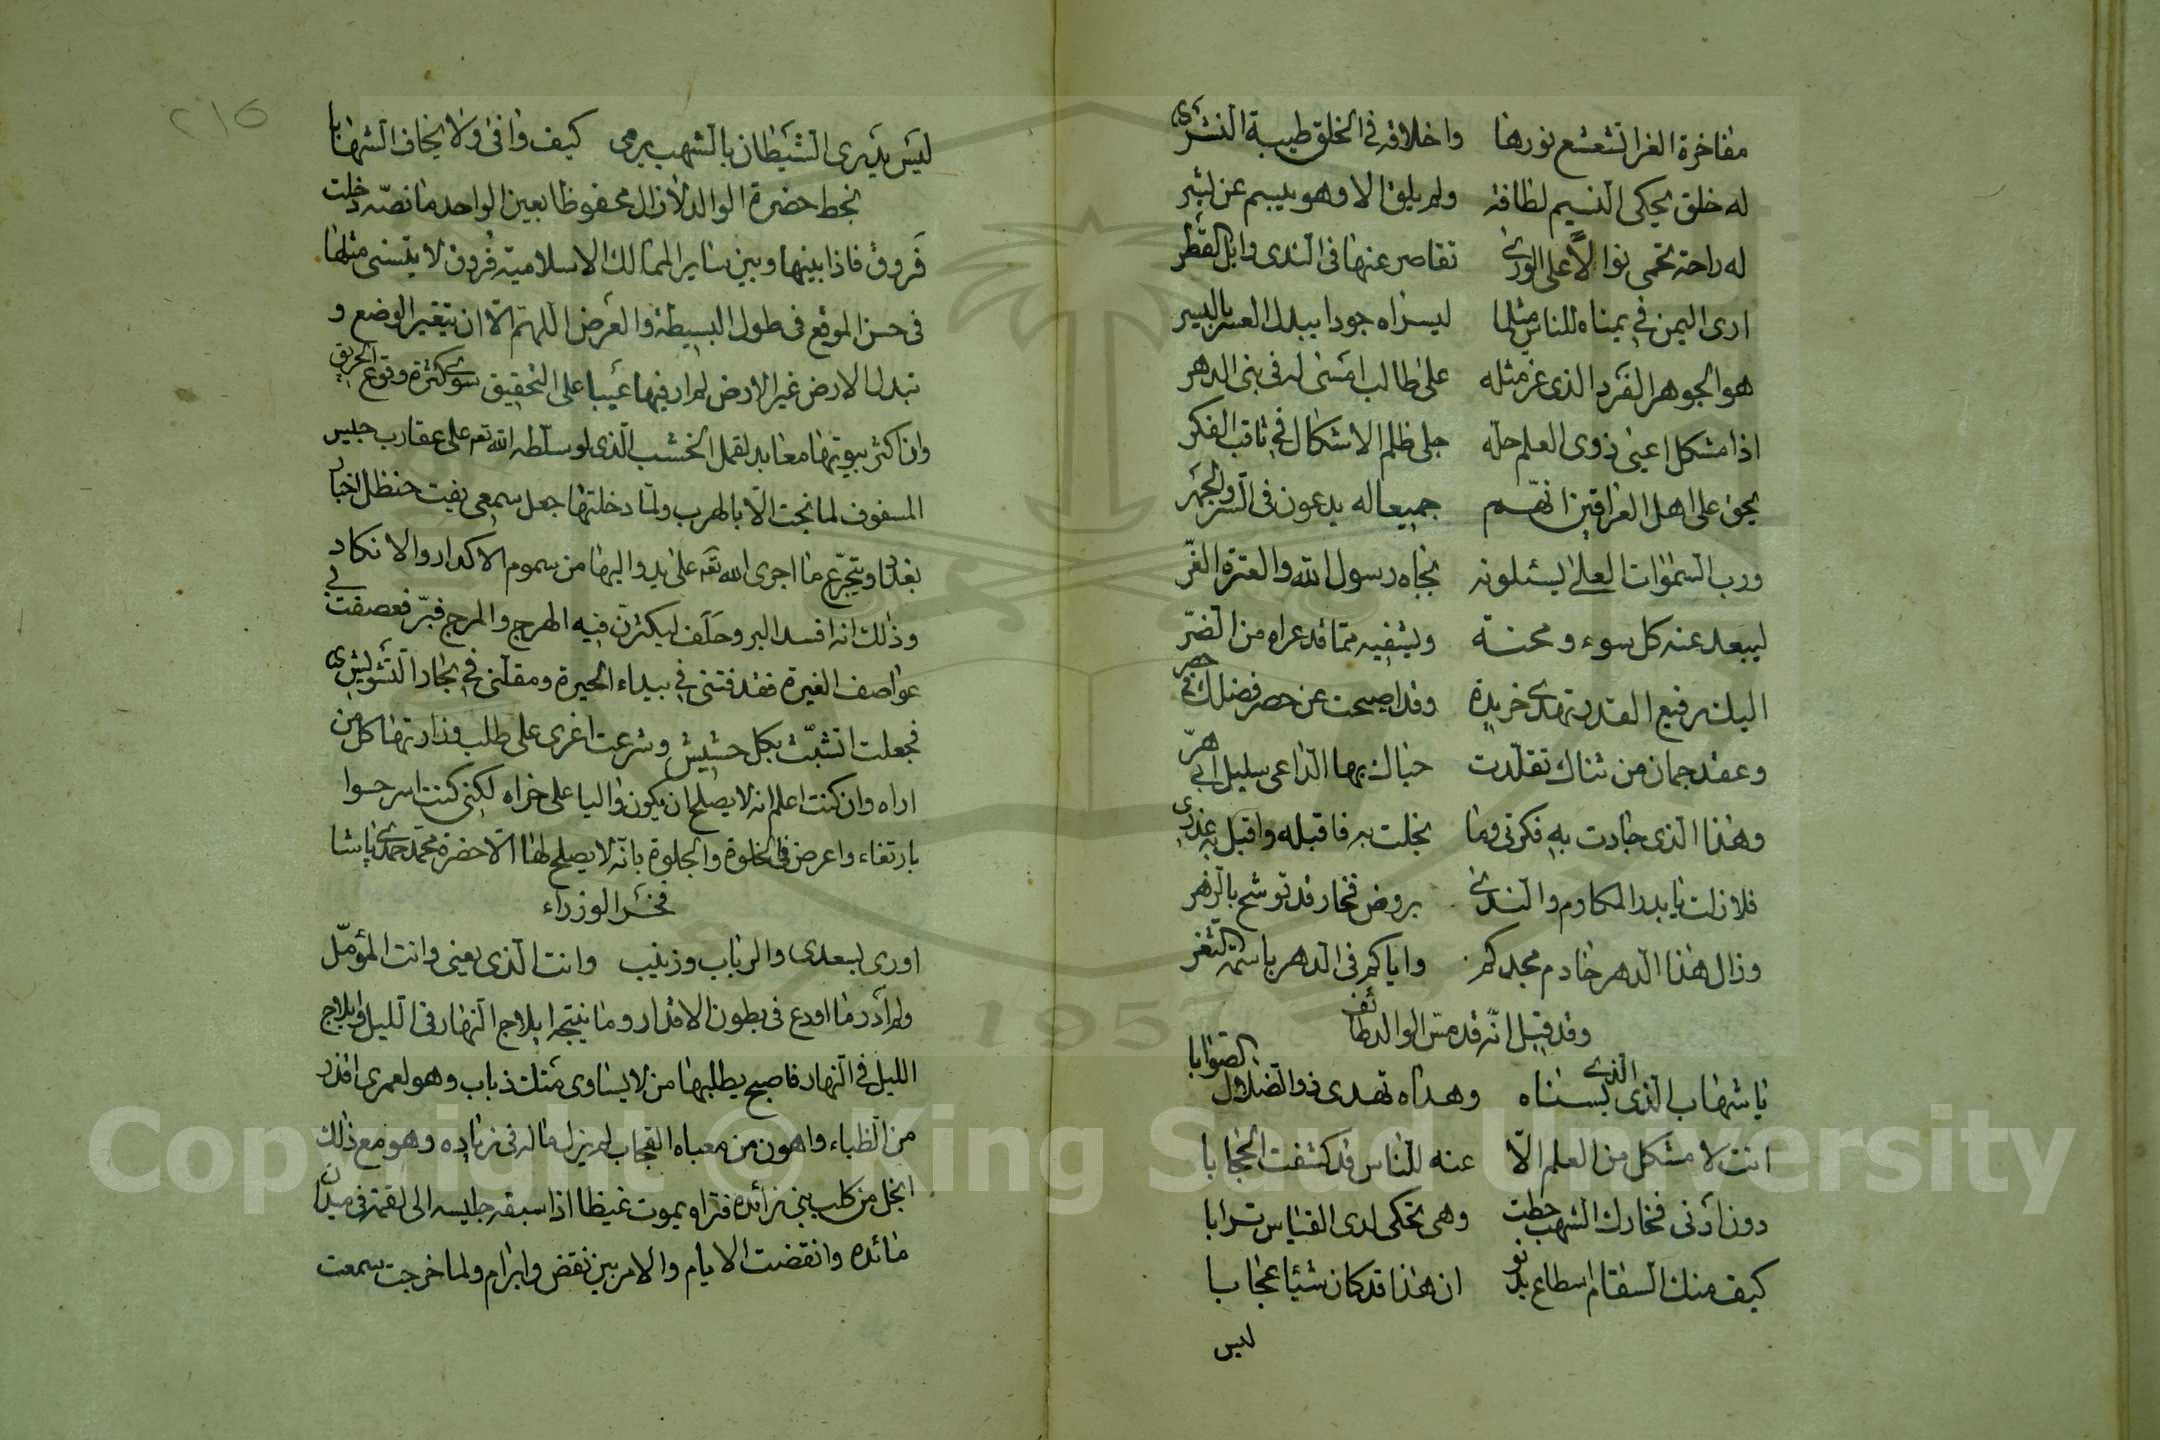 مفاخرة الغرا تشعشع نورها واخلاقه في الخلق طيبة النشرى
له خلق يحكى النسيم لطافة ولم يلق الا وهو يبسم عن بشر
له راحة تحمى نوالًا على الورى تقاصر عنها فى الندى وابل القطر
ارى اليمن في يمناه للناس مثلما ليسراه جودا يبدل العسر باليسر
هو الجوهر الفرد الذى عز مثله على طالب امسى له فى بنى الدهر
اذا مشكل اعيى ذوى العلم حله جلى ظلم الاشكال في ثاقب الفكر
يحق على اهل العراقين انهم جميعا له يدعون فى السر والجهر
ورب السموات العلى يسئلونه بجاه رسول الله والعترة الغر
ليبعد عنه كل سوء ومحنة ويشفيه مما قد عراه من الضر
اليك رفيع القدر تهدى خريدة وقد اصبحت عن حصر فضلك في حصر
وعقد جمان من ثناك تقلدت حباك بها الداعى سليل ابى هر
وهذا الذى جادت به فكرتى وما بخلت به فاقبله واقبل به عذرى
فلا زلت يا بدر المكارم والندى بروض فخار قد توشح بالزهر
وزال هذا الدهر خادم مجدكم واياكم فى الدهر باسمة الثغر
وقد قيل انّه قد مس الوالد طائف
يا شهاب الذى بسناه وهداه تهدى ذو الضلال الصوابا
الذى
انت لا مشكل من العلم الّا عنه للناس قد كشفت الحجابا
دون ادنى فخارك الشهب حطت وهى تحكى لدى القياس ترابا
كيف منك السقام اسطاع يدنو ان هذا قد كان شيئا عجابا
ليس
ليس يدرى الشيطان بالشهب يرمى كيف وافى ولا يخاف الشهابا
بخط حضرة الوالد لازال محفوظا بعين الواحد ما نصّه دخلت
فروق فاذا بينها وبين ساير الممالك الاسلامية فروق لا يتسنى مثلها
فى حسن الموقع فى طول البسيطة والعرض اللهم الا ان يتغير الوضع و
تبدل الارض غير الارض لم ار فيها عيبا على التحقيق سوى كثرة وقوع الحريق
وان اكثر بيوتها معابد لقمل الخشب الّذى لو سلّطه الله تعه على عقارب جليس
المسفوف لما نجت الّا بالهرب ولمّا دخلتها جعل سمعى يفت حنظل اخبار
بغداد ويتجرّع ما اجرى الله تعه على يد واليها من سموم الاكدار والانكاد
وذلك انه افسد البر وحلف ليكثرن فيه الهرج والمرج فبرّ فعصفت بى
عواصف الغيرة فقذفتنى في بيداء الحيرة ومقلتنى في بحار التشويش
فجعلت اتشبّث بكل حشيش وشرعت اغرى على طلب وزارتها كل من
اراه وان كنت اعلم انه لا يصلح ان يكون واليا على خراه لكنى كنت اسر حسوا
بارتغاء واعرض فى الخلوة والجلوة بانّه لا يصلح لها الّا حضرة محمّد حمدى پاشا
فخر الوزراء
اورى بسعدى والرباب وزينب وانت الذى يعنى وانت المؤمّل
ولم ادر ما اودع فى بطون الاقدار وما ينتجه ايلاج النهار فى الليل وايلاج
الليل فى النهار فاصبح يطلبها من لا يساوى متك ذباب وهو لعمرى اقذر
من الظباء واهون من معباه القحاب لم يزل ماله فى زياده وهو مع ذلك
ابخل من كلب بنى زائده فتراه يموت غيظا اذا سبقه جليسه الى لقمة فى ميدان
مائده وانقضت الايام والامر بين نقض وابرام ولما خرجت سمعت